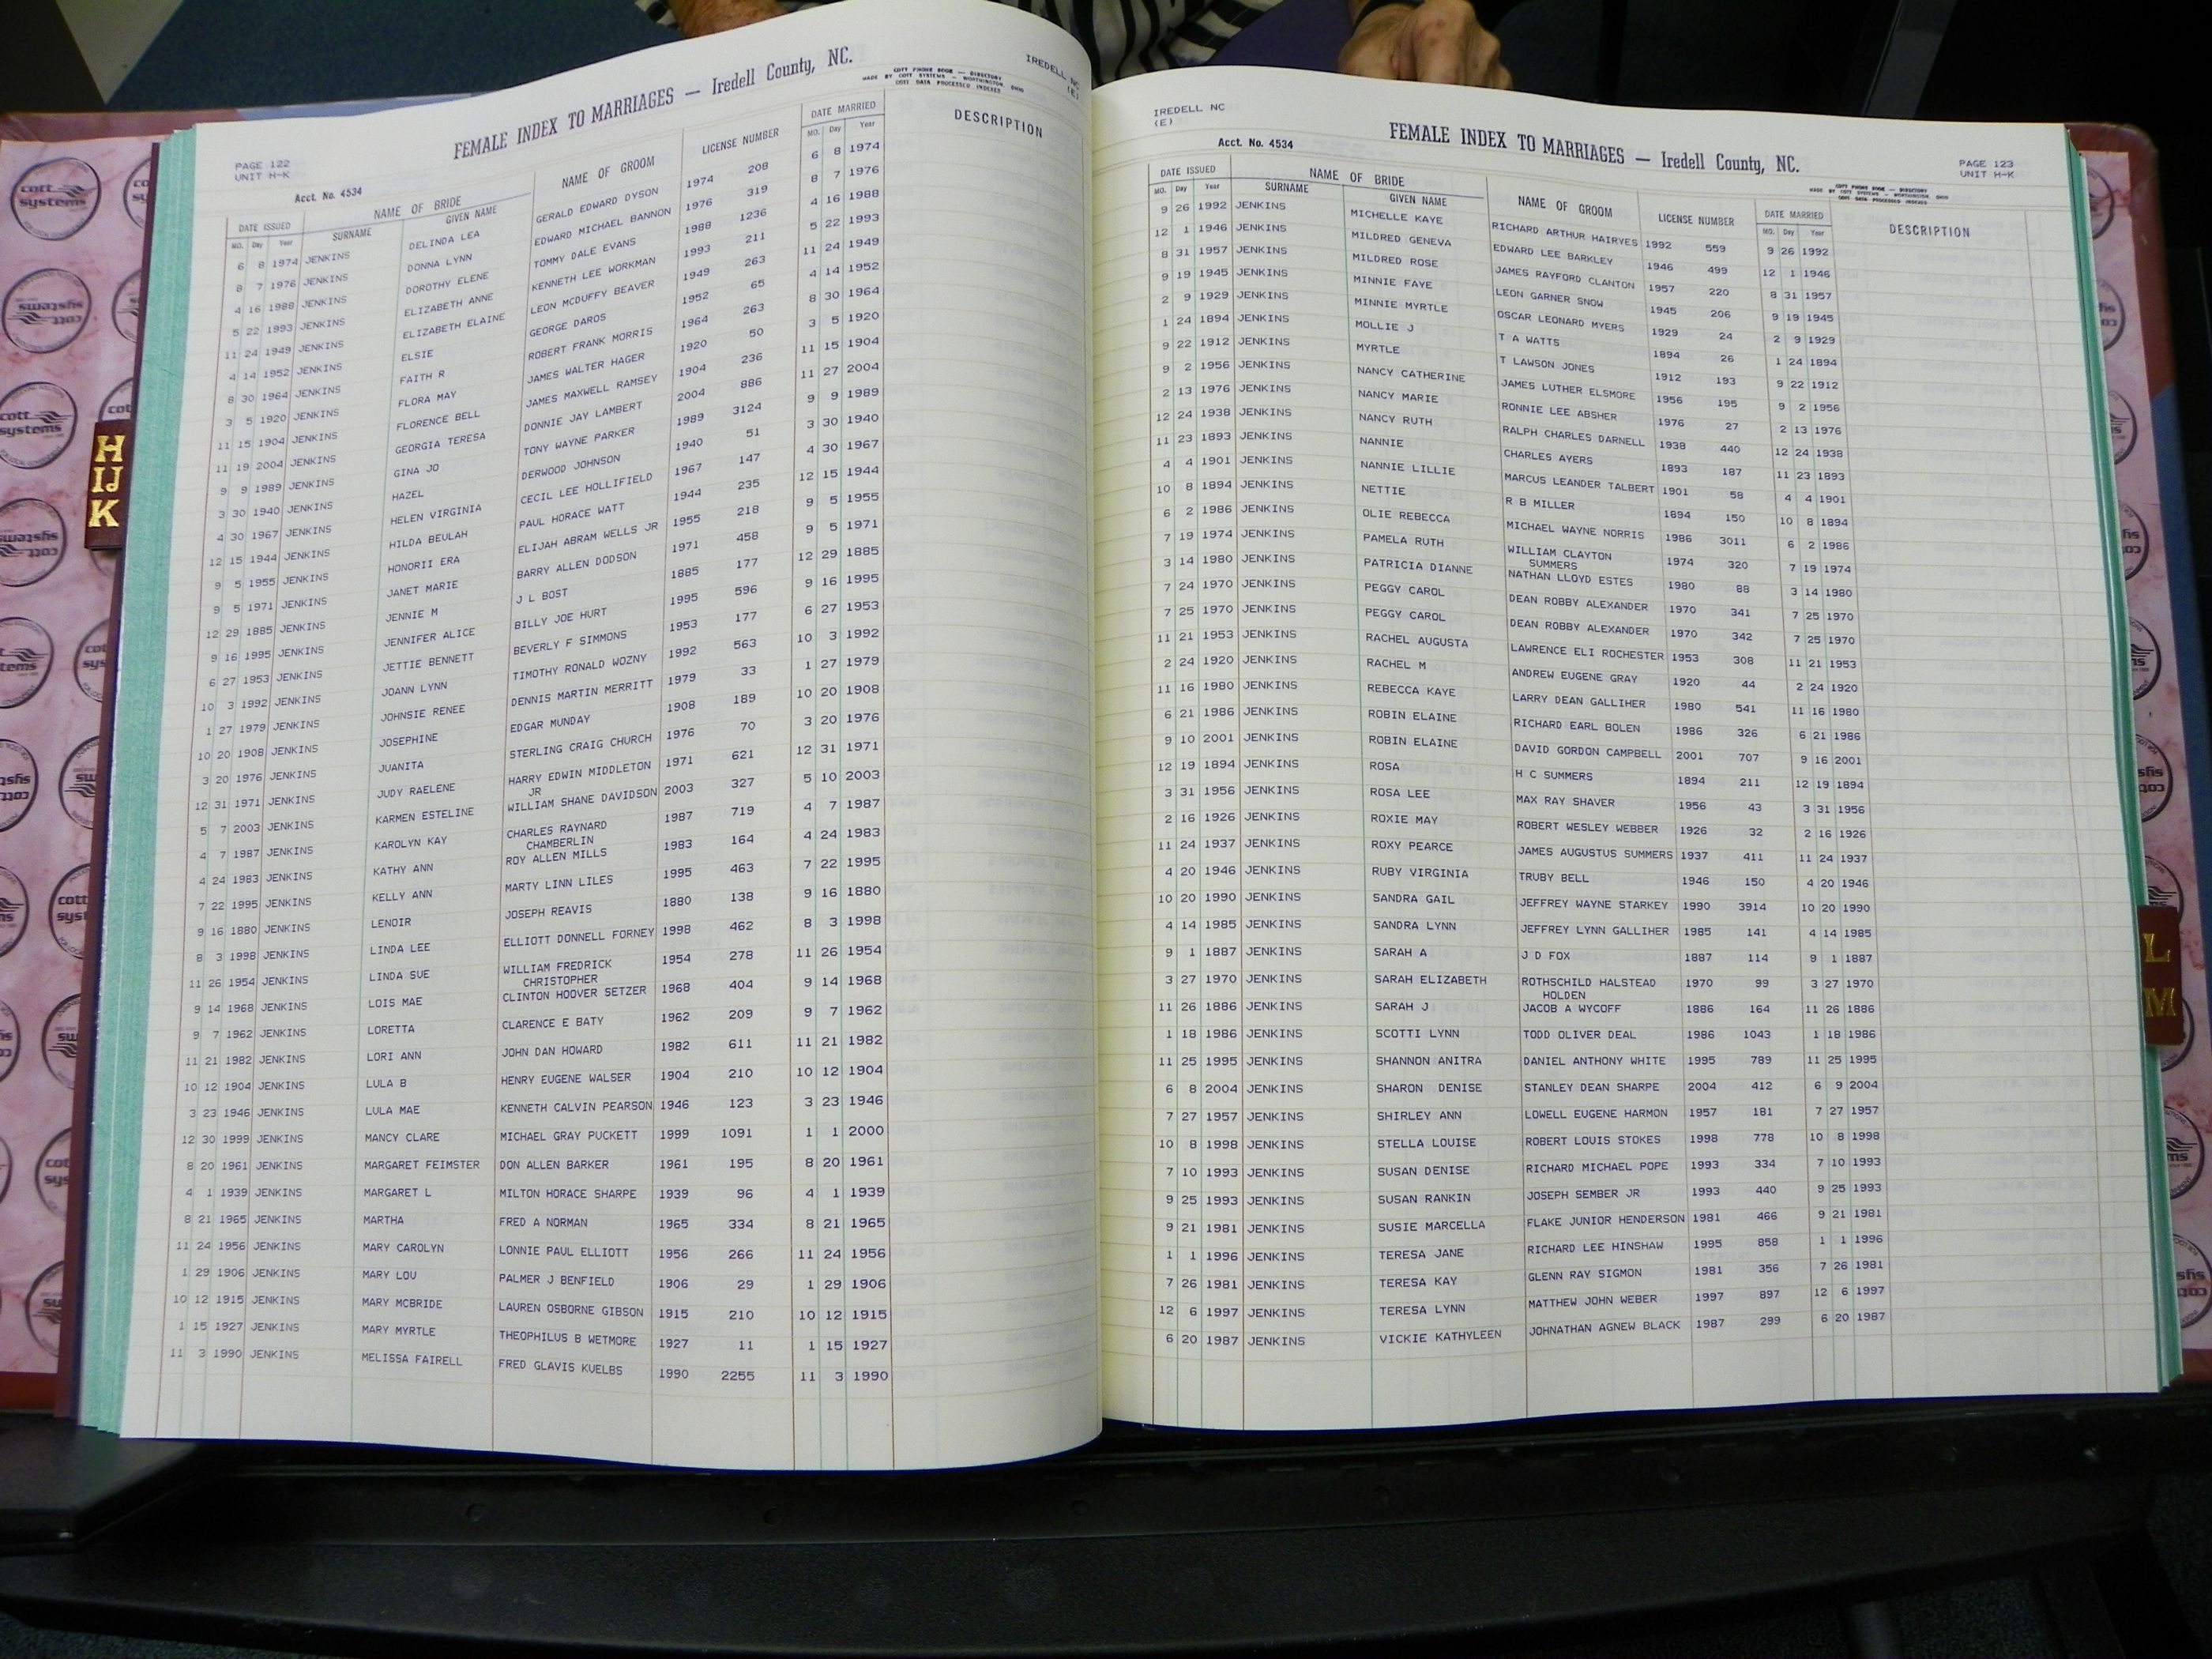 FEMALE INDEX TO MARRIAGES — Iredell County, NC.
COTT PHONE BOOK — DIRECTORY
MADE BY COTT SYSTEMS — WORTHINGTON, OHIO
COTT DATA PROCESSED INDEXES
IREDELL NC
(E)
PAGE 122
UNIT H-K
Acct. No. 4534
DATE ISSUED NAME OF BRIDE NAME OF GROOM LICENSE NUMBER DATE MARRIED DESCRIPTION
MO. Day Year SURNAME GIVEN NAME MO. Day Year
6 8 1974 JENKINS DELINDA LEA GERALD EDWARD DYSON 1974 208 6 8 1974
8 7 1976 JENKINS DONNA LYNN EDWARD MICHAEL BANNON 1976 319 8 7 1976
4 16 1988 JENKINS DOROTHY ELENE TOMMY DALE EVANS 1988 1236 4 16 1988
5 22 1993 JENKINS ELIZABETH ANNE KENNETH LEE WORKMAN 1993 211 5 22 1993
11 24 1949 JENKINS ELIZABETH ELAINE LEON MCDUFFY BEAVER 1949 263 11 24 1949
4 14 1952 JENKINS ELSIE GEORGE DAROS 1952 65 4 14 1952
8 30 1964 JENKINS FAITH R ROBERT FRANK MORRIS 1964 263 8 30 1964
3 5 1920 JENKINS FLORA MAY JAMES WALTER HAGER 1920 50 3 5 1920
11 15 1904 JENKINS FLORENCE BELL JAMES MAXWELL RAMSEY 1904 236 11 15 1904
11 19 2004 JENKINS GEORGIA TERESA DONNIE JAY LAMBERT 2004 886 11 27 2004
9 9 1989 JENKINS GINA JO TONY WAYNE PARKER 1989 3124 9 9 1989
3 30 1940 JENKINS HAZEL DERWOOD JOHNSON 1940 51 3 30 1940
4 30 1967 JENKINS HELEN VIRGINIA CECIL LEE HOLLIFIELD 1967 147 4 30 1967
12 15 1944 JENKINS HILDA BEULAH PAUL HORACE WATT 1944 235 12 15 1944
9 5 1955 JENKINS HONORII ERA ELIJAH ABRAM WELLS JR 1955 218 9 5 1955
9 5 1971 JENKINS JANET MARIE BARRY ALLEN DODSON 1971 458 9 5 1971
12 29 1885 JENKINS JENNIE M J L BOST 1885 177 12 29 1885
9 16 1995 JENKINS JENNIFER ALICE BILLY JOE HURT 1995 596 9 16 1995
6 27 1953 JENKINS JETTIE BENNETT BEVERLY F SIMMONS 1953 177 6 27 1953
10 3 1992 JENKINS JOANN LYNN TIMOTHY RONALD WOZNY 1992 563 10 3 1992
1 27 1979 JENKINS JOHNSIE RENEE DENNIS MARTIN MERRITT 1979 33 1 27 1979
10 20 1908 JENKINS JOSEPHINE EDGAR MUNDAY 1908 189 10 20 1908
3 20 1976 JENKINS JUANITA STERLING CRAIG CHURCH 1976 70 3 20 1976
12 31 1971 JENKINS JUDY RAELENE HARRY EDWIN MIDDLETON 1971 621 12 31 1971
JR
5 7 2003 JENKINS KARMEN ESTELINE WILLIAM SHANE DAVIDSON 2003 327 5 10 2003
4 7 1987 JENKINS KAROLYN KAY CHARLES RAYNARD 1987 719 4 7 1987
CHAMBERLIN
4 24 1983 JENKINS KATHY ANN ROY ALLEN MILLS 1983 164 4 24 1983
7 22 1995 JENKINS KELLY ANN MARTY LINN LILES 1995 463 7 22 1995
9 16 1880 JENKINS LENOIR JOSEPH REAVIS 1880 138 9 16 1880
8 3 1998 JENKINS LINDA LEE ELLIOTT DONNELL FORNEY 1998 462 8 3 1998
11 26 1954 JENKINS LINDA SUE WILLIAM FREDRICK 1954 278 11 26 1954
CHRISTOPHER
9 14 1968 JENKINS LOIS MAE CLINTON HOOVER SETZER 1968 404 9 14 1968
9 7 1962 JENKINS LORETTA CLARENCE E BATY 1962 209 9 7 1962
11 21 1982 JENKINS LORI ANN JOHN DAN HOWARD 1982 611 11 21 1982
10 12 1904 JENKINS LULA B HENRY EUGENE WALSER 1904 210 10 12 1904
3 23 1946 JENKINS LULA MAE KENNETH CALVIN PEARSON 1946 123 3 23 1946
12 30 1999 JENKINS MANCY CLARE MICHAEL GRAY PUCKETT 1999 1091 1 1 2000
8 20 1961 JENKINS MARGARET FEIMSTER DON ALLEN BARKER 1961 195 8 20 1961
4 1 1939 JENKINS MARGARET L MILTON HORACE SHARPE 1939 96 4 1 1939
8 21 1965 JENKINS MARTHA FRED A NORMAN 1965 334 8 21 1965
11 24 1956 JENKINS MARY CAROLYN LONNIE PAUL ELLIOTT 1956 266 11 24 1956
1 29 1906 JENKINS MARY LOU PALMER J BENFIELD 1906 29 1 29 1906
10 12 1915 JENKINS MARY MCBRIDE LAUREN OSBORNE GIBSON 1915 210 10 12 1915
1 15 1927 JENKINS MARY MYRTLE THEOPHILUS B WETMORE 1927 11 1 15 1927
11 3 1990 JENKINS MELISSA FAIRELL FRED GLAVIS KUELBS 1990 2255 11 3 1990
IREDELL NC
(E)
FEMALE INDEX TO MARRIAGES — Iredell County, NC.
Acct. No. 4534
PAGE 123
UNIT H-K
COTT PHONE BOOK — DIRECTORY
MADE BY COTT SYSTEMS — WORTHINGTON, OHIO
COTT DATA PROCESSED INDEXES
DATE ISSUED NAME OF BRIDE NAME OF GROOM LICENSE NUMBER DATE MARRIED DESCRIPTION
MO. Day Year SURNAME GIVEN NAME MO. Day Year
9 26 1992 JENKINS MICHELLE KAYE RICHARD ARTHUR HAIRYES 1992 559 9 26 1992
12 1 1946 JENKINS MILDRED GENEVA EDWARD LEE BARKLEY 1946 499 12 1 1946
8 31 1957 JENKINS MILDRED ROSE JAMES RAYFORD CLANTON 1957 220 8 31 1957
9 19 1945 JENKINS MINNIE FAYE LEON GARNER SNOW 1945 206 9 19 1945
2 9 1929 JENKINS MINNIE MYRTLE OSCAR LEONARD MYERS 1929 24 2 9 1929
1 24 1894 JENKINS MOLLIE J T A WATTS 1894 26 1 24 1894
9 22 1912 JENKINS MYRTLE T LAWSON JONES 1912 193 9 22 1912
9 2 1956 JENKINS NANCY CATHERINE JAMES LUTHER ELSMORE 1956 195 9 2 1956
2 13 1976 JENKINS NANCY MARIE RONNIE LEE ABSHER 1976 27 2 13 1976
12 24 1938 JENKINS NANCY RUTH RALPH CHARLES DARNELL 1938 440 12 24 1938
11 23 1893 JENKINS NANNIE CHARLES AYERS 1893 187 11 23 1893
4 4 1901 JENKINS NANNIE LILLIE MARCUS LEANDER TALBERT 1901 58 4 4 1901
10 8 1894 JENKINS NETTIE R B MILLER 1894 150 10 8 1894
6 2 1986 JENKINS OLIE REBECCA MICHAEL WAYNE NORRIS 1986 3011 6 2 1986
7 19 1974 JENKINS PAMELA RUTH WILLIAM CLAYTON 1974 320 7 19 1974
SUMMERS
3 14 1980 JENKINS PATRICIA DIANNE NATHAN LLOYD ESTES 1980 88 3 14 1980
7 24 1970 JENKINS PEGGY CAROL DEAN ROBBY ALEXANDER 1970 341 7 25 1970
7 25 1970 JENKINS PEGGY CAROL DEAN ROBBY ALEXANDER 1970 342 7 25 1970
11 21 1953 JENKINS RACHEL AUGUSTA LAWRENCE ELI ROCHESTER 1953 308 11 21 1953
2 24 1920 JENKINS RACHEL M ANDREW EUGENE GRAY 1920 44 2 24 1920
11 16 1980 JENKINS REBECCA KAYE LARRY DEAN GALLIHER 1980 541 11 16 1980
6 21 1986 JENKINS ROBIN ELAINE RICHARD EARL BOLEN 1986 326 6 21 1986
9 10 2001 JENKINS ROBIN ELAINE DAVID GORDON CAMPBELL 2001 707 9 16 2001
12 19 1894 JENKINS ROSA H C SUMMERS 1894 211 12 19 1894
3 31 1956 JENKINS ROSA LEE MAX RAY SHAVER 1956 43 3 31 1956
2 16 1926 JENKINS ROXIE MAY ROBERT WESLEY WEBBER 1926 32 2 16 1926
11 24 1937 JENKINS ROXY PEARCE JAMES AUGUSTUS SUMMERS 1937 411 11 24 1937
4 20 1946 JENKINS RUBY VIRGINIA TRUBY BELL 1946 150 4 20 1946
10 20 1990 JENKINS SANDRA GAIL JEFFREY WAYNE STARKEY 1990 3914 10 20 1990
4 14 1985 JENKINS SANDRA LYNN JEFFREY LYNN GALLIHER 1985 141 4 14 1985
9 1 1887 JENKINS SARAH A J D FOX 1887 114 9 1 1887
3 27 1970 JENKINS SARAH ELIZABETH ROTHSCHILD HALSTEAD 1970 99 3 27 1970
HOLDEN
11 26 1886 JENKINS SARAH J JACOB A WYCOFF 1886 164 11 26 1886
1 18 1986 JENKINS SCOTTI LYNN TODD OLIVER DEAL 1986 1043 1 18 1986
11 25 1995 JENKINS SHANNON ANITRA DANIEL ANTHONY WHITE 1995 789 11 25 1995
6 8 2004 JENKINS SHARON DENISE STANLEY DEAN SHARPE 2004 412 6 9 2004
7 27 1957 JENKINS SHIRLEY ANN LOWELL EUGENE HARMON 1957 181 7 27 1957
10 8 1998 JENKINS STELLA LOUISE ROBERT LOUIS STOKES 1998 778 10 8 1998
7 10 1993 JENKINS SUSAN DENISE RICHARD MICHAEL POPE 1993 334 7 10 1993
9 25 1993 JENKINS SUSAN RANKIN JOSEPH SEMBER JR 1993 440 9 25 1993
9 21 1981 JENKINS SUSIE MARCELLA FLAKE JUNIOR HENDERSON 1981 466 9 21 1981
1 1 1996 JENKINS TERESA JANE RICHARD LEE HINSHAW 1995 858 1 1 1996
7 26 1981 JENKINS TERESA KAY GLENN RAY SIGMON 1981 356 7 26 1981
12 6 1997 JENKINS TERESA LYNN MATTHEW JOHN WEBER 1997 897 12 6 1997
6 20 1987 JENKINS VICKIE KATHYLEEN JOHNATHAN AGNEW BLACK 1987 299 6 20 1987
H
IJ
K
L
M
cott
systems